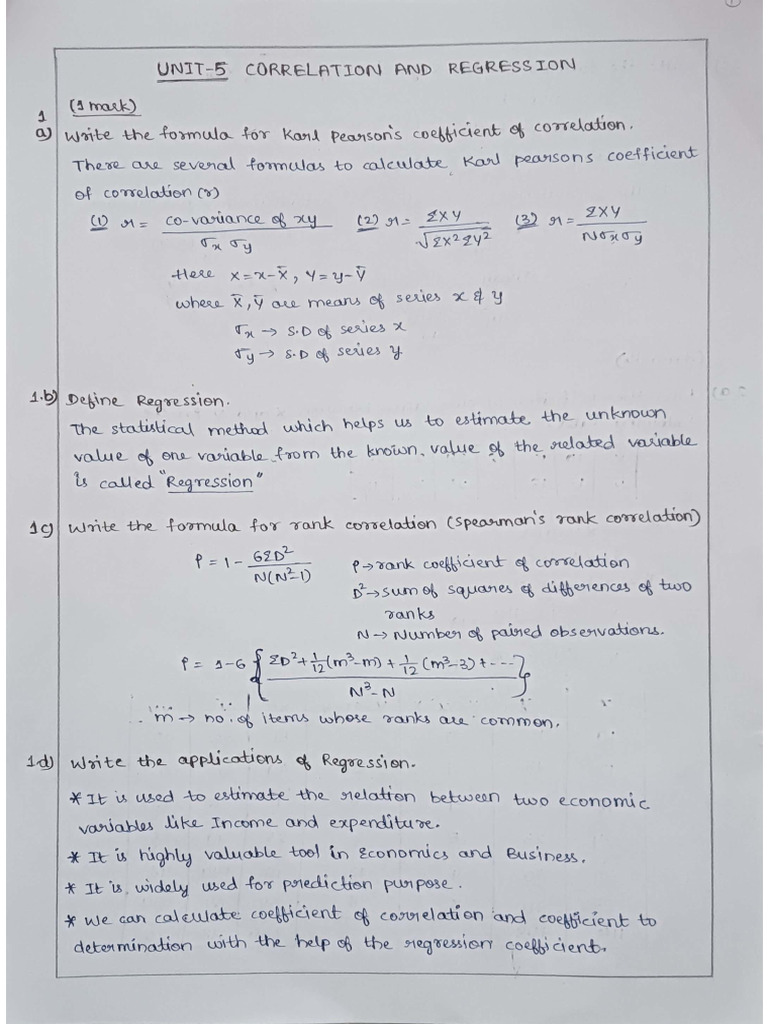 UNIT-5 CORRELATION AND REGRESSION
1 (1 mark)
a) Write the formula for Karl Pearson's coefficient of correlation.
There are several formulas to calculate Karl pearsons coefficient
of correlation (r)
(1) r = co-variance of xy / σx σy (2) r = ΣXY / √ΣX² ΣY² (3) r = ΣXY / Nσxσy
Here X = x-X̄, Y = y-Ȳ
where X̄, Ȳ are means of series x & y
σx → S.D of series x
σy → S.D of series y
1.b) Define Regression.
The statistical method which helps us to estimate the unknown
value of one variable from the known value of the related variable
is called "Regression"
1c) Write the formula for rank correlation (Spearman's rank correlation)
ρ = 1 - 6ΣD² / N(N²-1) ρ → rank coefficient of correlation
D² → sum of squares of differences of two
ranks
N → Number of paired observations.
ρ = 1-6 { ΣD² + 1/12 (m³-m) + 1/12 (m³-3) + --- / N³-N }
m → no. of items whose ranks are common.
1d) Write the applications of Regression.
* It is used to estimate the relation between two economic
variables like Income and expenditure.
* It is highly valuable tool in Economics and Business.
* It is widely used for prediction purpose.
* We can calculate coefficient of correlation and coefficient to
determination with the help of the regression coefficient.